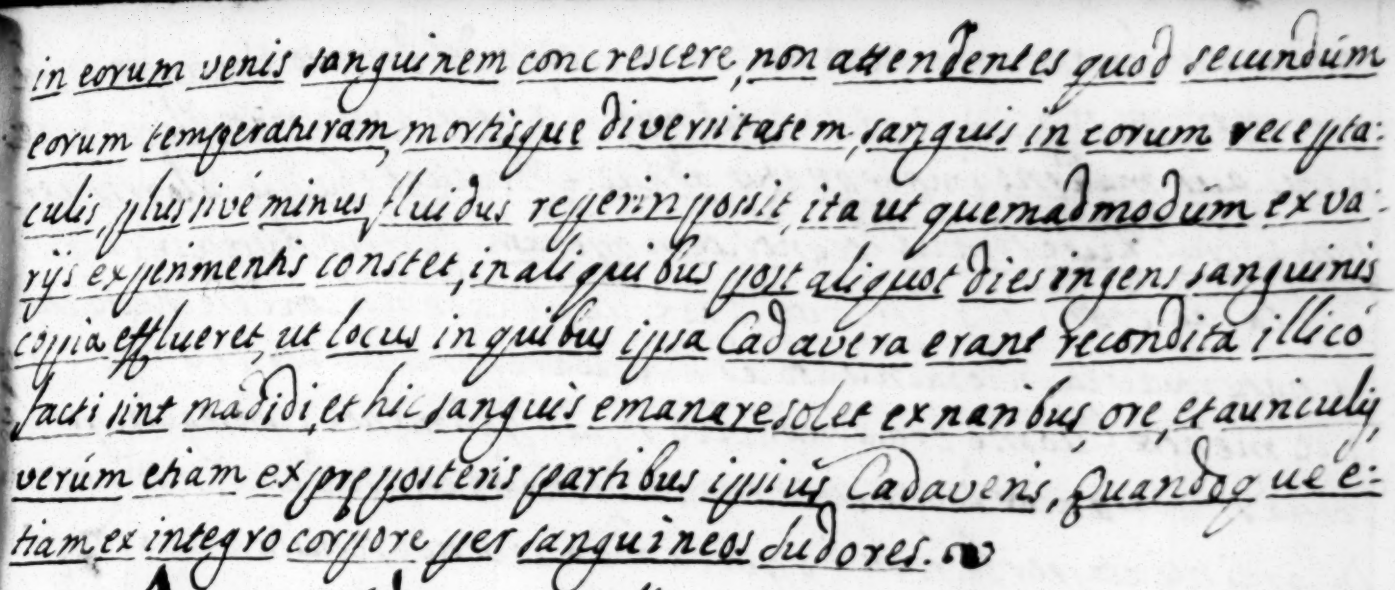 in eorum venis sanguinem concrescere, non attendentes quod secundúm
eorum temperaturam, mortisque diversitatem, sanguis in eorum recepta:
culis, plus sivé minus fluidus reperiri possit, ita ut quemadmodúm ex va:
rijs experimentis constet, in aliquibus post aliquot dies ingens sanguinis
copia efflueret, ut locus in quibus ipsa Cadavera erant recondita illicó
facti sint madidi, et hic sanguis emanare solet ex naribus, ore, et auriculis,
verúm etiam ex preposteris partibus ipsius Cadaveris, Quandoq ué é:
tiam ex integro corpore per sanguineos sudores.